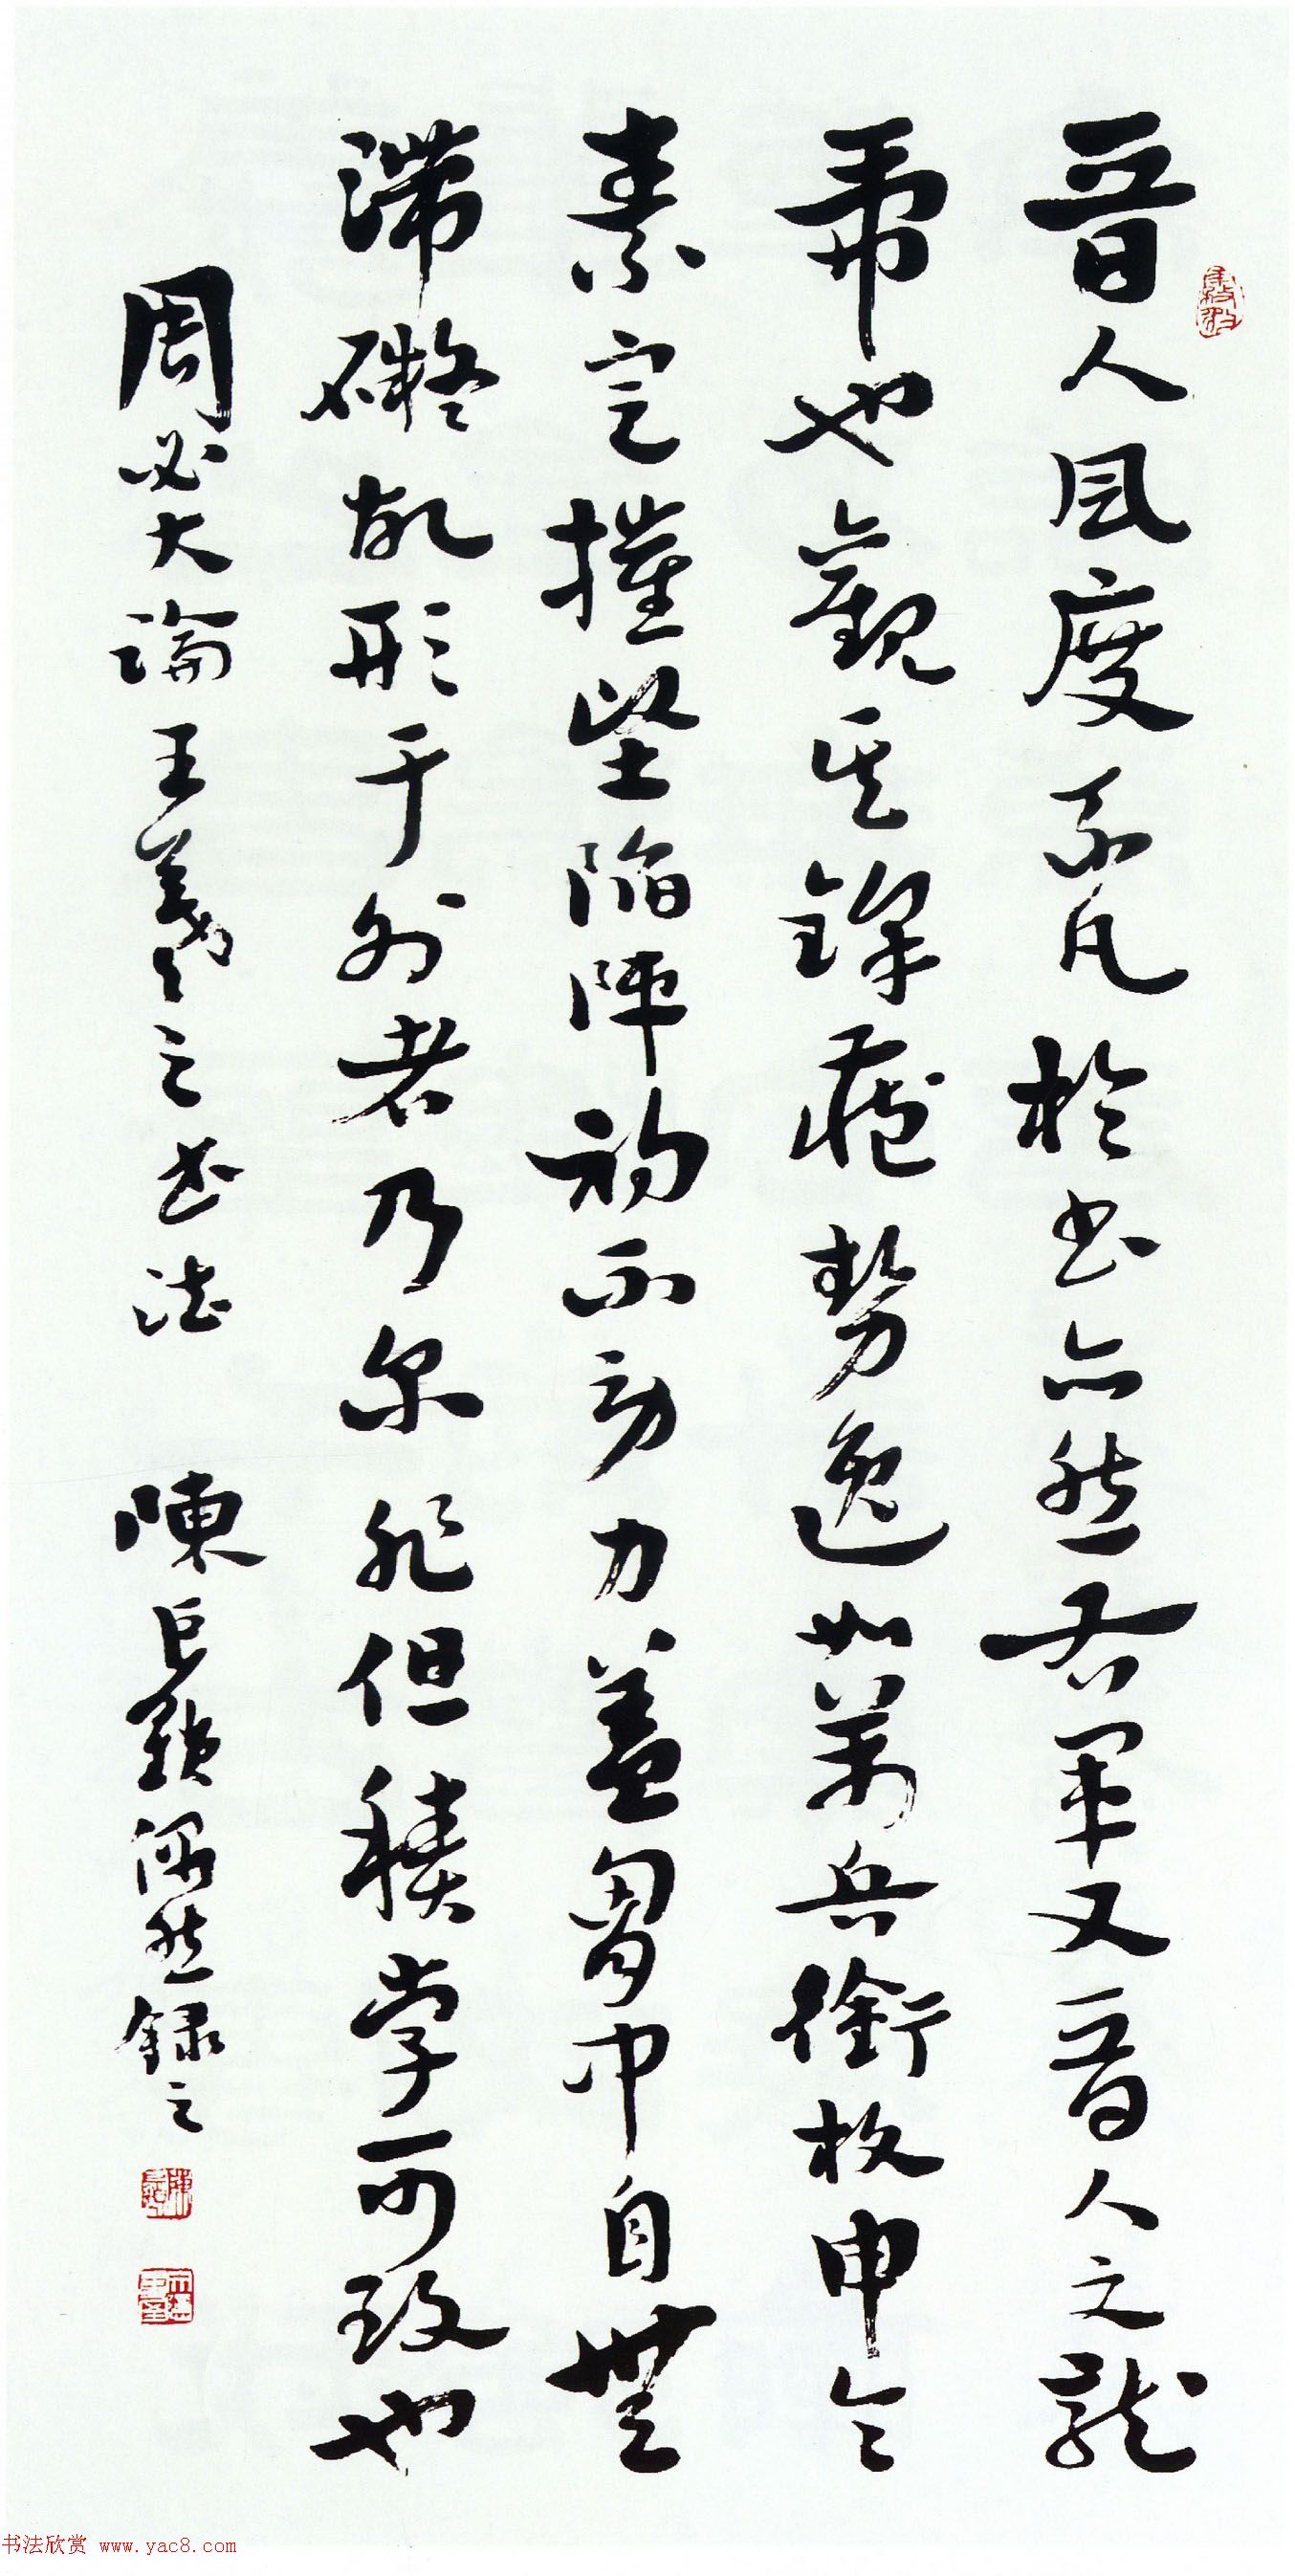 晋人風度不凡於書亦然右軍又晋人之龍
乕也觀其鋒藏勢逸如萬兵銜枚申令
素定摧堅陷陣初不動力蓋胷中自無
滯礙故形于外者乃尔非但積學可致也
周必大論王羲之之書法 陳巨鎖偶然録之
书法欣赏 www.yac8.com